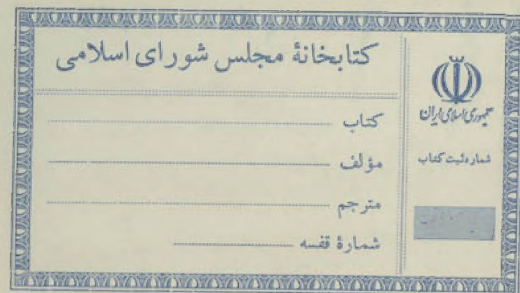 کتابخانهٔ مجلس شورای اسلامی
کتاب
مؤلف
مترجم
شمارهٔ قفسه
جمهوری اسلامی ایران
شماره ثبت کتاب